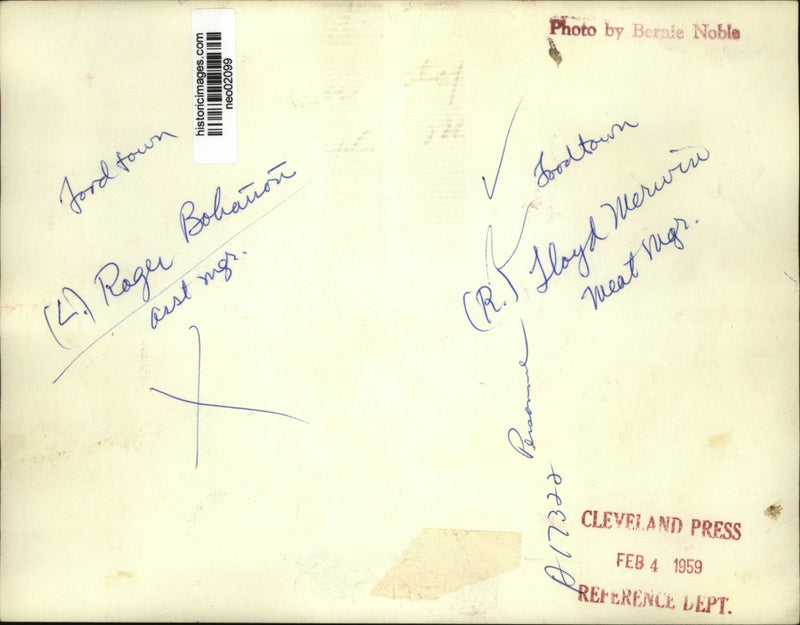 Photo by Bernie Noble
historicimages.com
neo02099
Foodtown
(L.) Roger Bohanon
asst mgr.
Foodtown
(R.) Lloyd Merwin
Meat Mgr.
Personnel
A17322
CLEVELAND PRESS
FEB 4 1959
REFERENCE DEPT.